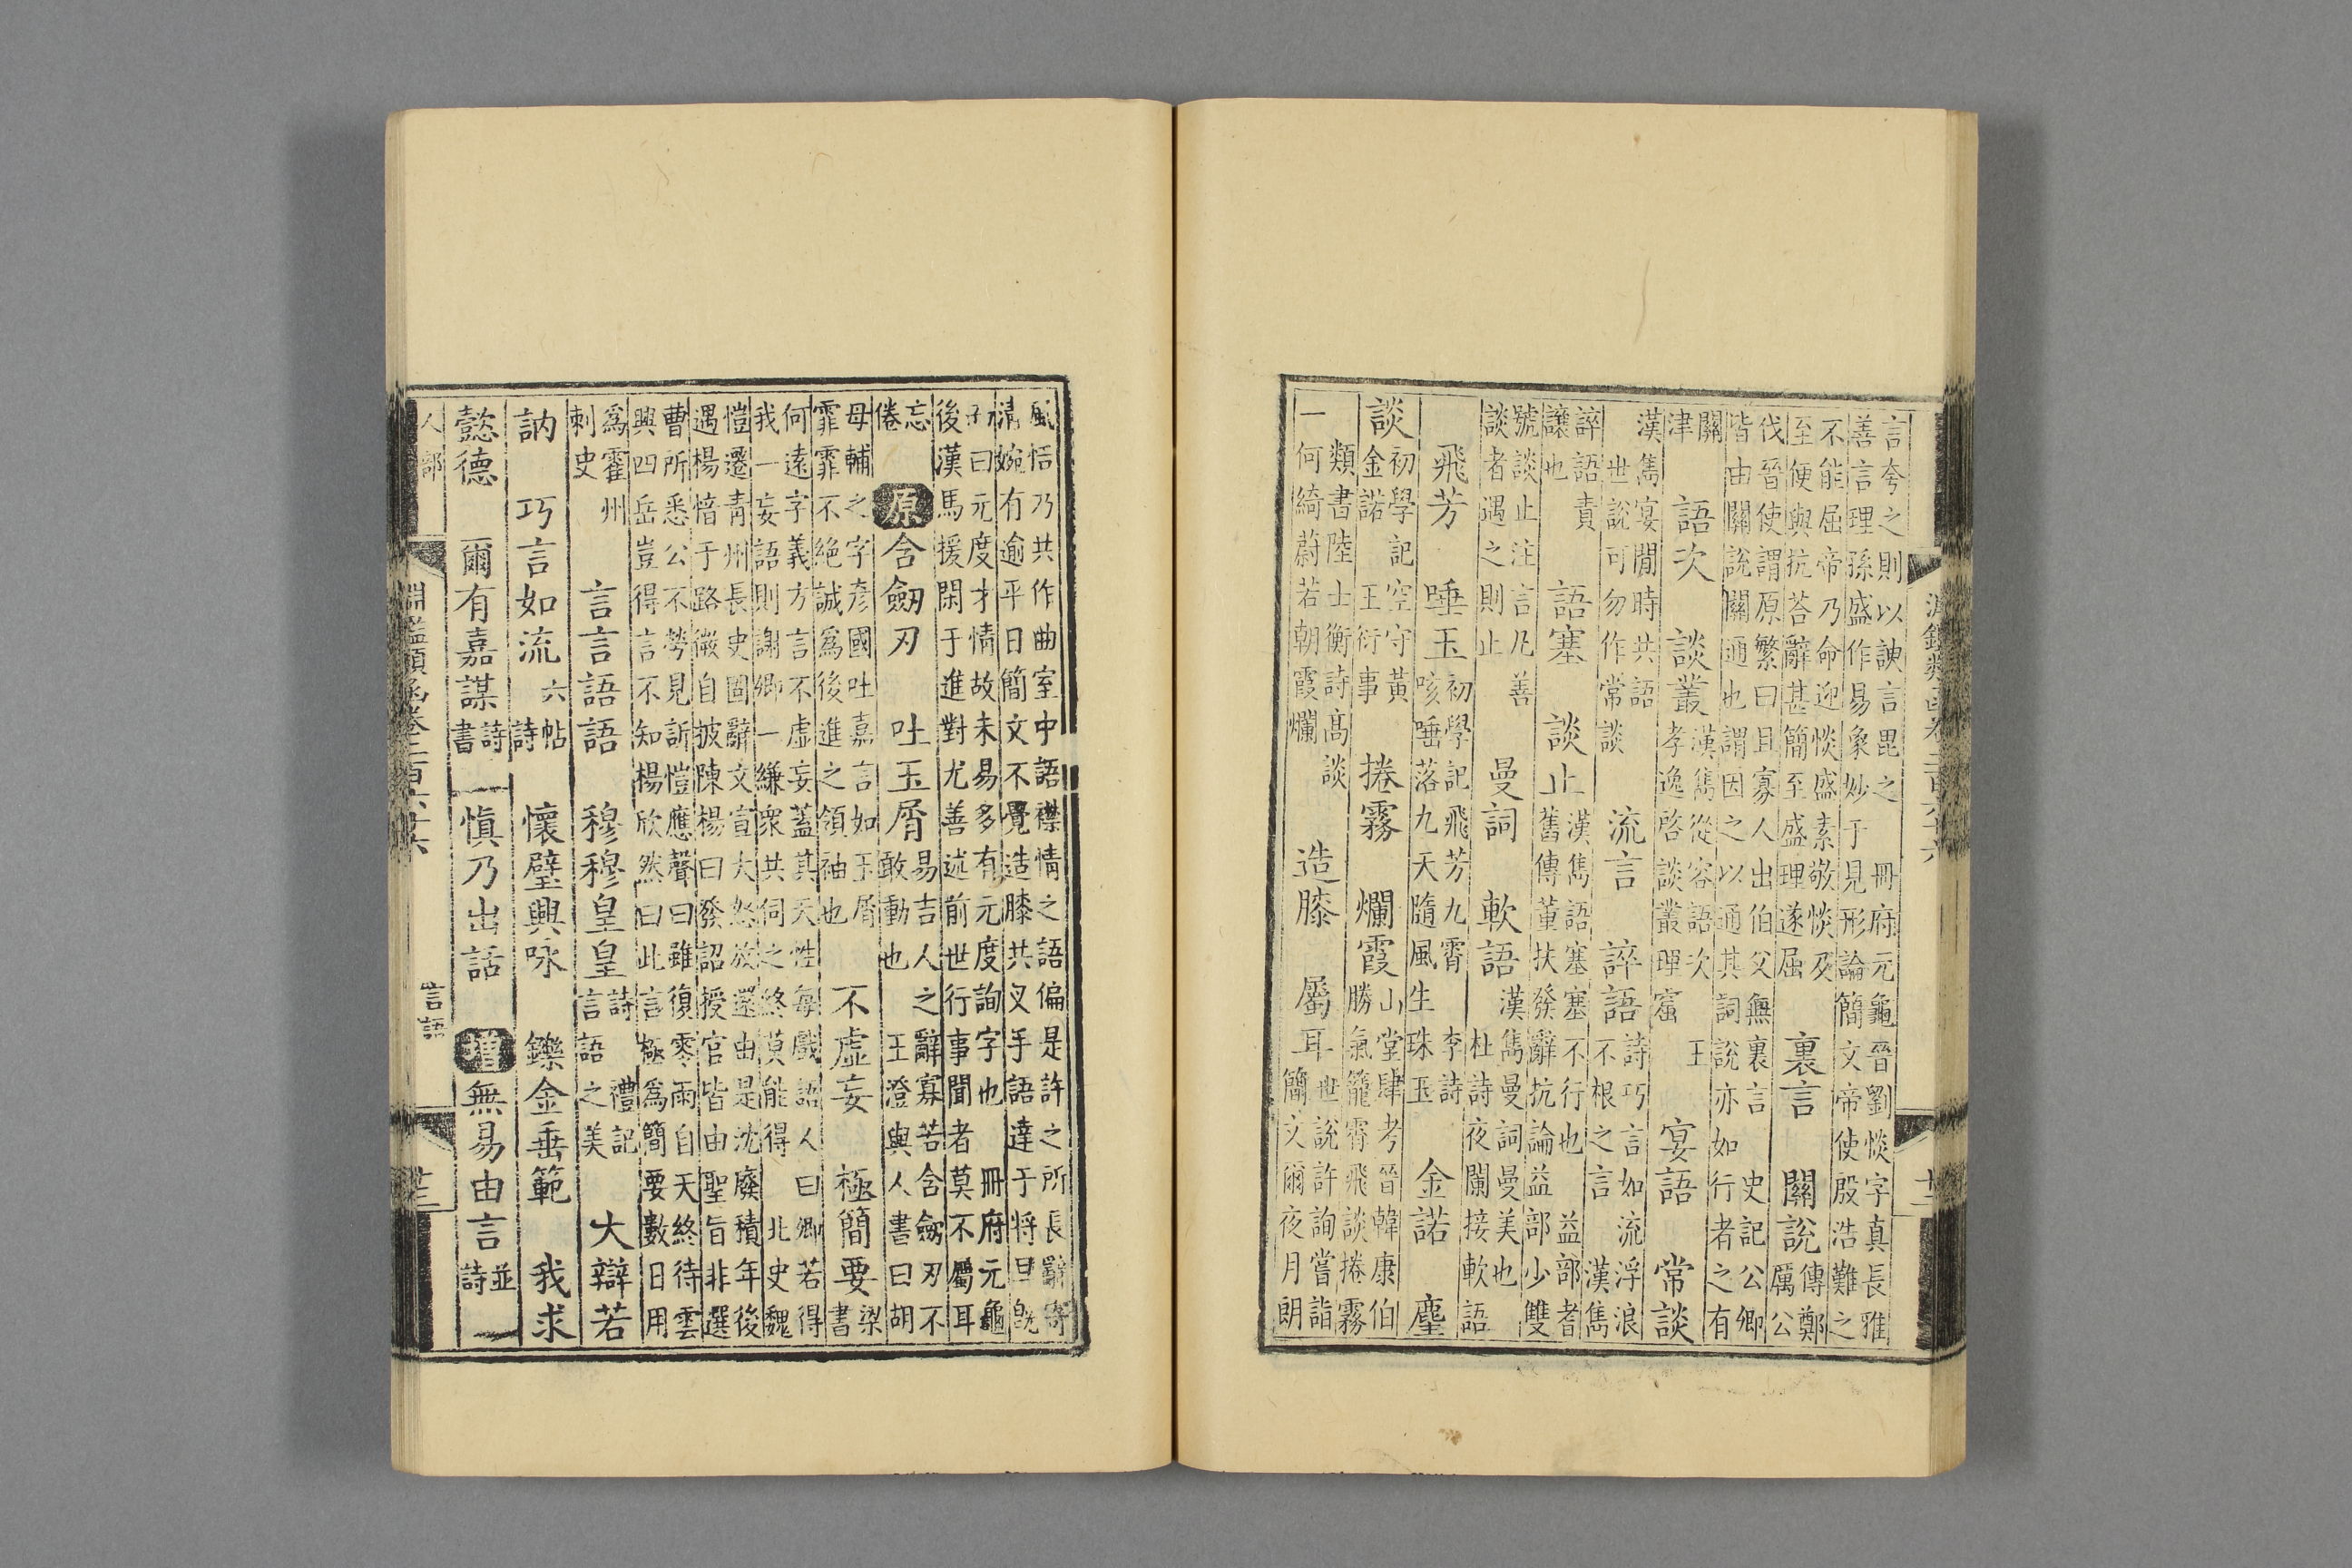 淵鑑類函卷二百六十六
十二
言夸之則以諛言毘之 冊府元龜晉劉惔字真長雅
善言理孫盛作易象妙于見形論簡文帝使殷浩難之
不能屈帝乃命迎惔盛素敬惔及
至便與抗荅辭甚簡至盛理遂屈
裏言 關說
傳鄭
厲公
伐晉使謂原繁曰且寡人出伯父無裏言 史記公卿
皆由關說關通也謂因之以通其詞說亦如行者之有
關
津
語次 談叢
漢雋從容語次 王
孝逸啓談叢理窟
宴語 常談
漢雋宴閒時共語
世說可勿作常談
流言 誶語
詩巧言如流浮浪
不根之言 漢雋
誶語責
讓也
語塞 談止
漢雋語塞塞不行也 益部耆
舊傳董扶發辭抗論益部少雙
號談止注言乃善
談者遇之則止
曼詞 軟語
漢雋曼詞曼美也
杜詩夜闌接軟語
飛芳 唾玉
初學記飛芳九霄 李詩
咳唾落九天隨風生珠玉
金諾 麈
談
初學記空守黃
金諾 王衍事
捲霧 爛霞
山堂肆考晉韓康伯
勝氣籠霄飛談捲霧
類書陸士衡詩高談
一何綺蔚若朝霞爛
造膝 屬耳
世說許詢嘗詣
簡文爾夜月朗
風恬乃共作曲室中語襟情之語偏是許之所長辭寄
清婉有逾平日簡文不覺造膝共叉手語達于將旦旣
而曰元度才情故未易多有元度詢字也 冊府元龜
後漢馬援閑于進對尤善述前世行事聞者莫不屬耳
忘
倦
原 含劒刃 吐玉屑
易吉人之辭寡若含劒刃不
敢動也 王澄與人書曰胡
母輔之字彥國吐嘉言如玉屑
霏霏不絕誠爲後進之領袖也
不虛妄 極簡要
梁
書
何遠字義方言不虛妄蓋其天性每戲語人曰卿若得
我一妄語則謝卿一縑衆共伺之終莫能得 北史魏
愷遷青州長史固辭文宣大怒放還由是沈廢積年後
遇楊愔于路微自披陳楊曰發詔授官皆由聖旨非選
曹所悉公不勞見訴愷應聲曰雖復零雨自天終待雲
興四岳豈得言不知楊欣然曰此言極爲簡要數日用
爲霍州
刺史
言言語語 穆穆皇皇
詩 禮記
言語之美
大辯若
訥 巧言如流
六帖
詩
懷璧興咏 鑠金垂範 我求
懿德 爾有嘉謀
詩
書
愼乃出話 增 無易由言
並
詩
人部
淵鑑類函卷二百六十六
言語
十三